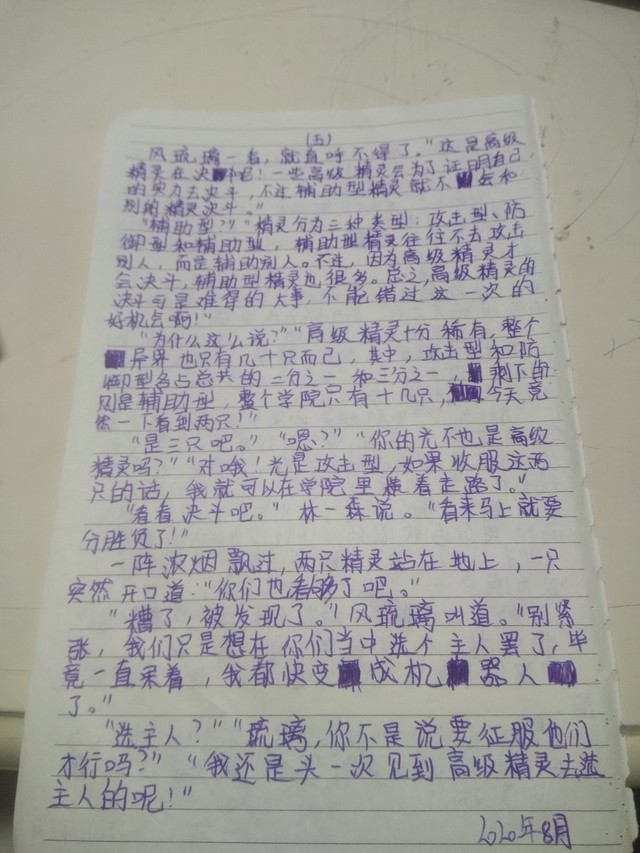 （五）
风琉璃一看，就直呼不得了。"这是高级
精灵在决斗吧！一些高级精灵会为了证明自己
的实力去决斗，不过辅助型精灵就不会和
别的精灵决斗。"
"辅助型？""精灵分为三种类型：攻击型、防
御型和辅助型，辅助型精灵往往不去攻击
别人，而是辅助别人。不过，因为高级精灵才
会决斗，辅助型精灵也很多。总之，高级精灵的
决斗可是难得的大事，不能错过这一次的
好机会啊！"
"为什么这么说？""高级精灵十分稀有，整个
异界也只有几十只而已，其中，攻击型和防
御型各占总共的二分之一和三分之一，剩下的
则是辅助型，整个学院只有十几只，今天竟
然一下看到两只！"
"是三只吧。""嗯？""你的光不也是高级
精灵吗？""对哦！光是攻击型，如果收服这两
只的话，我就可以在学院里横着走路了。"
"看看决斗吧。"林一森说。"看来马上就要
分胜负了！"
一阵浓烟飘过，两只精灵站在地上，一只
突然开口道："你们也看够了吧。"
"糟了，被发现了。"风琉璃叫道。"别紧
张，我们只是想在你们当中选个主人罢了，毕
竟一直呆着，我都快变成机器人
了。"
"选主人？""琉璃，你不是说要征服他们
才行吗？""我还是头一次见到高级精灵去选
主人的呢！"
2020年8月